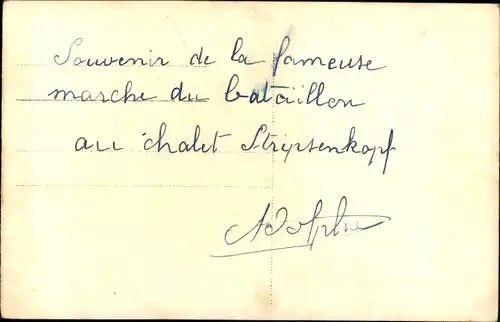 Souvenir de la fameuse
marche du bataillon
au chalet Stripsenkopf
Adolphe